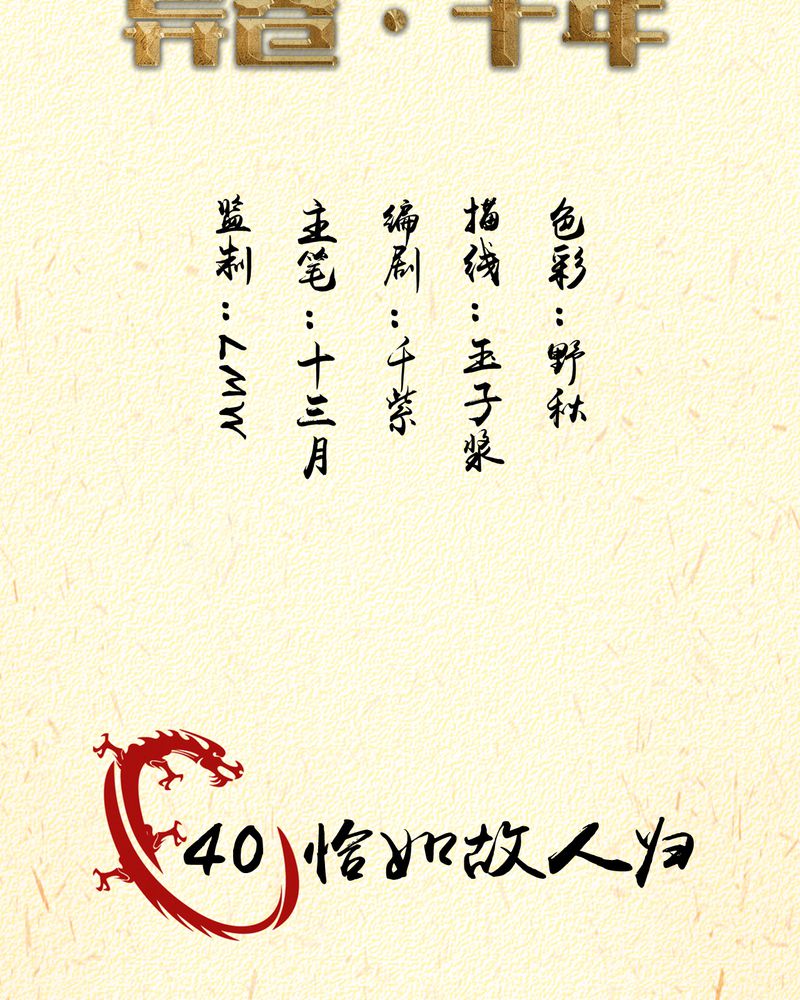 千年
色彩：野秋
描线：玉子浆
编剧：千紫
主笔：十三月
监制：MWL
40 恰如故人归